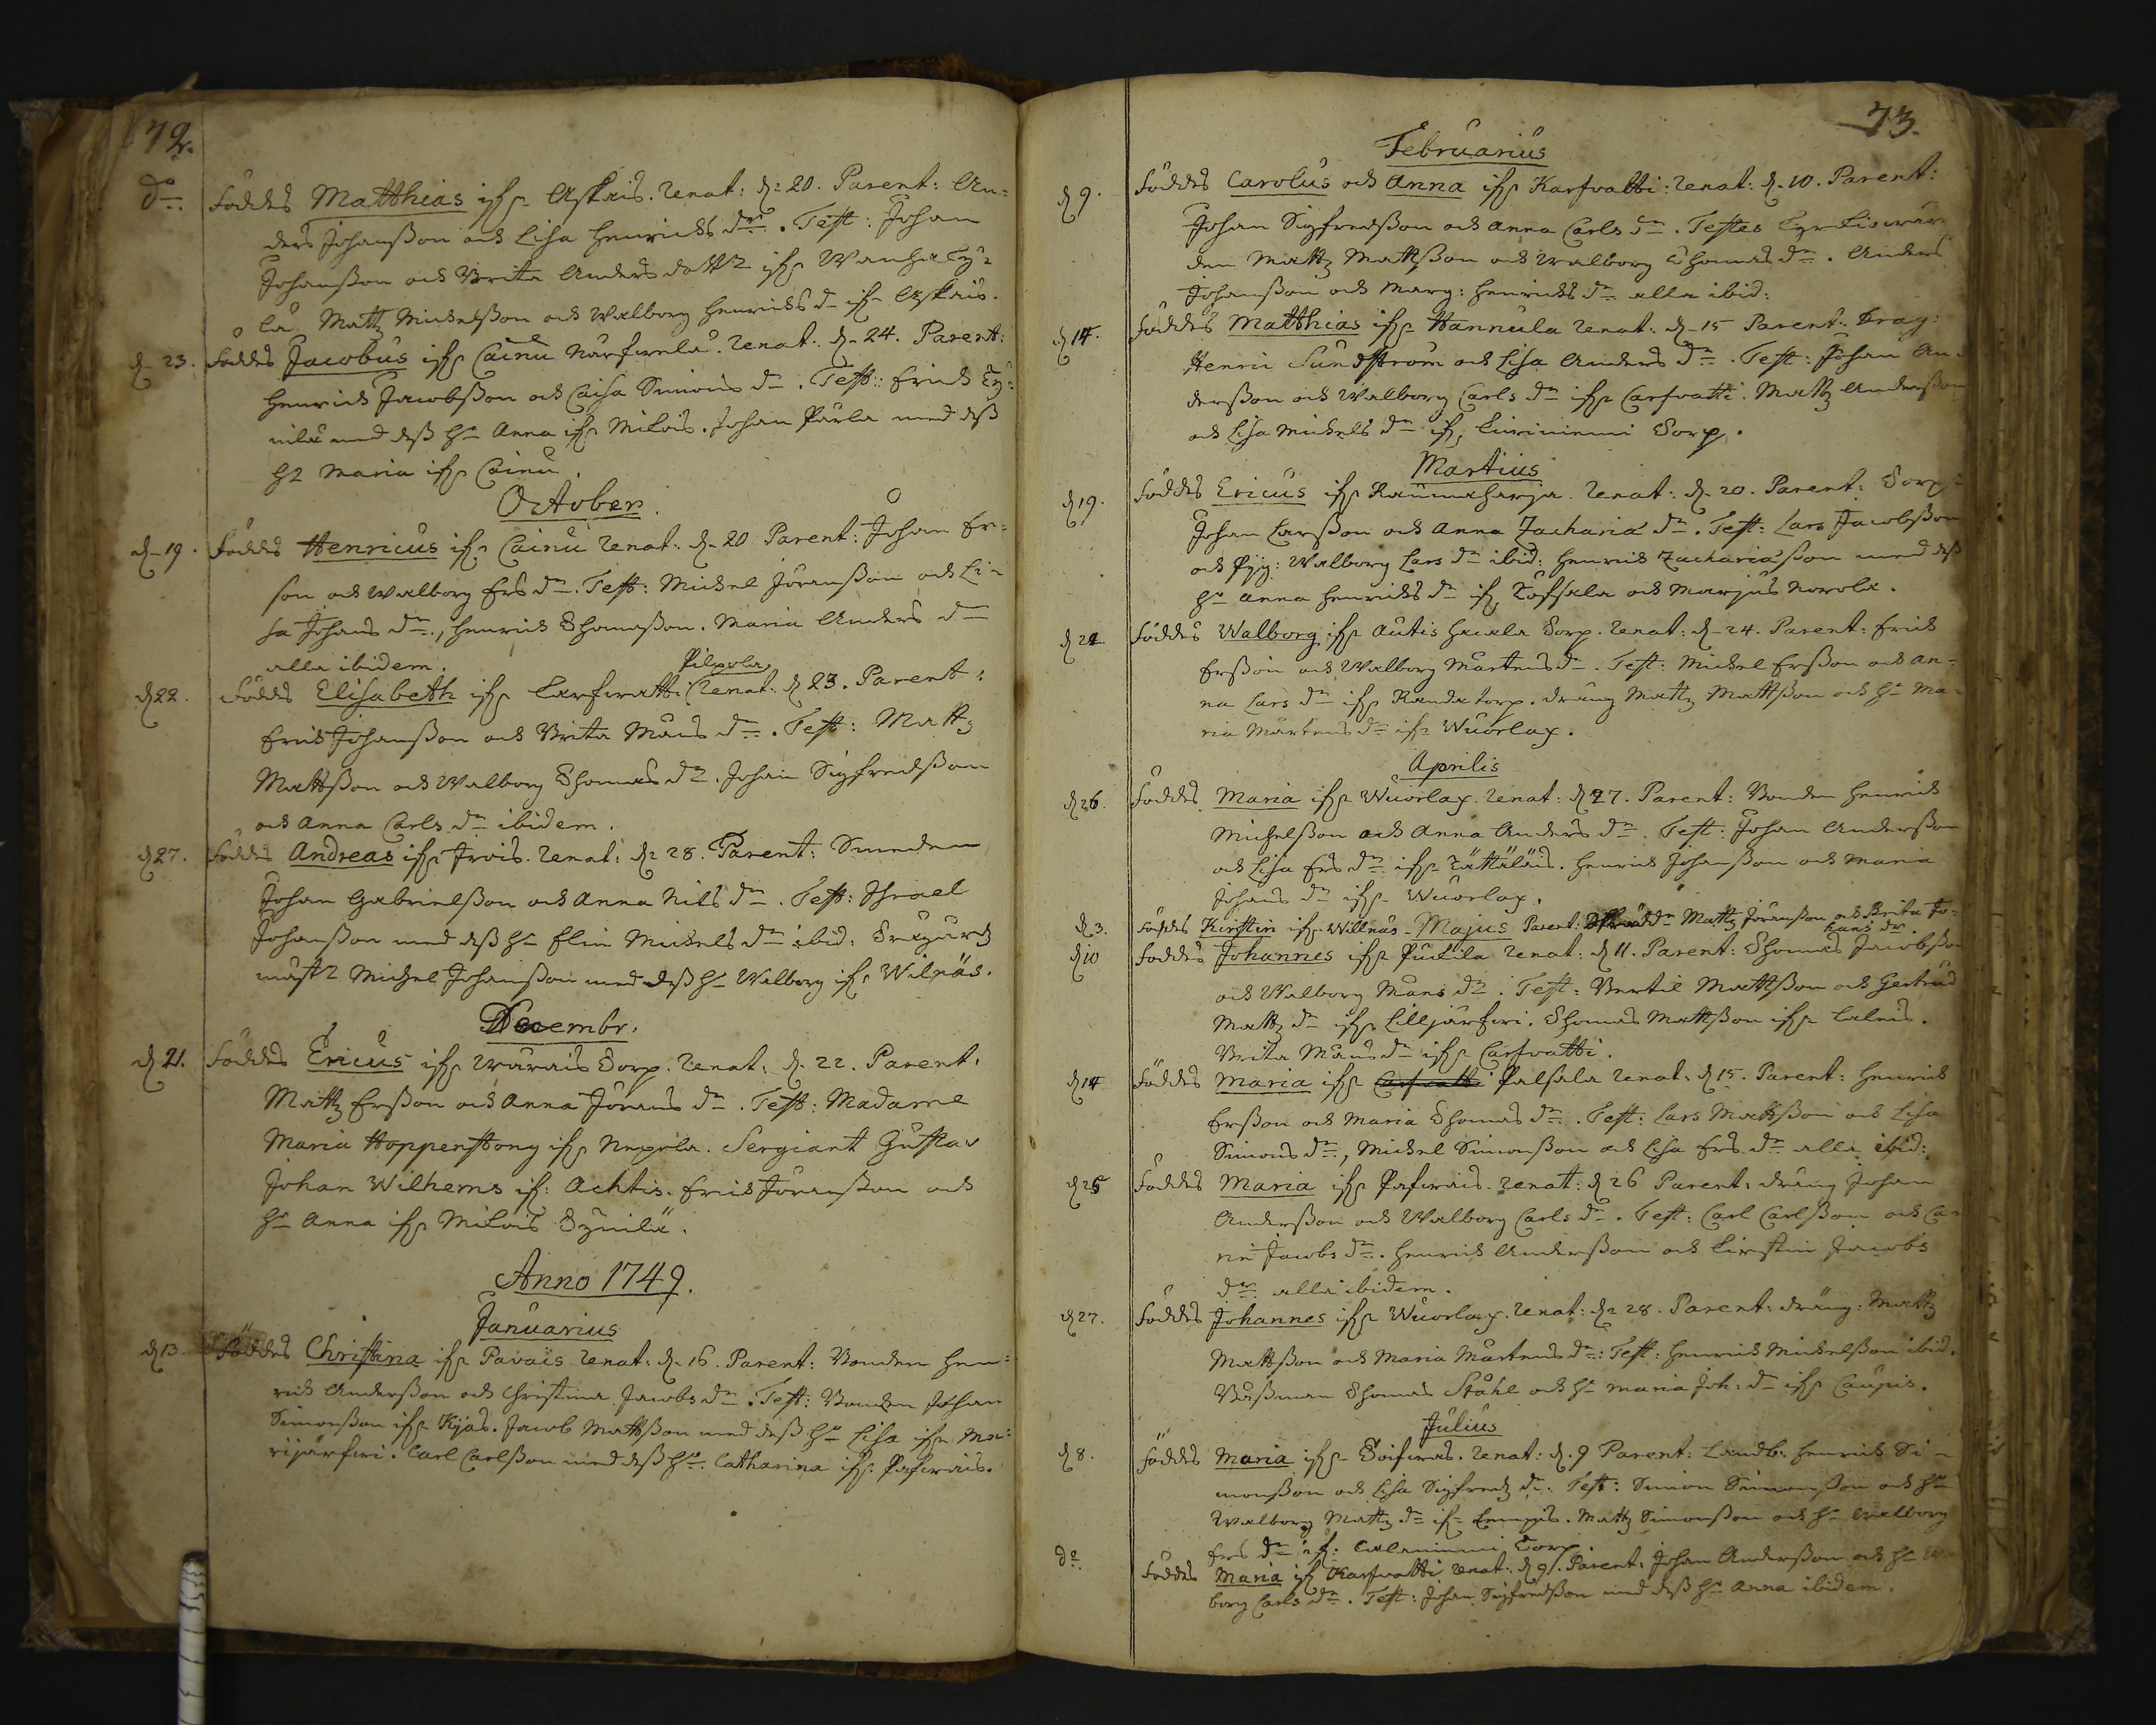 72.
do Föddes Matthias ifr. Askais. Renat: d. 20. Parent: An=
ders Johansson och Lisa Henrichs dr. Test: Johan
Johansson och Brita Anders dotter ifr. Wanha Ky=
lä. Matz Michelsson och Walborg Henrichs dr ifr. Askais.
d. 23. Föddes Jacobus ifr. Cainu Renat: d. 24. Parent:
Henrich Jacobsson och Caisa Simons dr. Test: Erich
med dess h. Anna ifr. Milois. Johan Pärla med dess
h. Maria ifr. Cainu.
October.
d. 19. Föddes Henricus ifr. Cainu Renat: d. 20 Parent: Johan Er=
son och Walborg Ers dr. Test: Michel Jöransson och Li=
sa Johans dr., Henrich Thomasson. Maria Anders dr
alla ibidem.
Pilpola
d. 22. Föddes Elisabeth ifr. Carfwatti Renat: d. 23. Parent:
Erich Johansson och Brita Måns dr. Test: Matz
Mattsson och Walborg Thomas dr. Johan Sigfredsson
och Anna Carls dr ibidem.
d. 27. Föddes Andreas ifr. Irois. Renat: d. 28. Parent: Smeden
Johan Gabrielsson och Anna Nils dr. Test: Israel
Johansson med dess h. Elin Michels dr ibid:
mäst. Michel Johansson med dess h. Walborg ifr. Wilnäs.
Decembr.
d. 21. Föddes Ericus ifr. Wärais Torp. Renat: d. 22. Parent.
Matz Ersson och Anna Jörans dr. Test: Madame
Maria Hoppenstong ifr. Nepola. Sergiant Gustav
Johan Wilhems if: Achtis. Erich Jöransson och
h. Anna ifr. Milois
Anno 1749.
Januarius
d. 13. Föddes Christina ifr. Pavais Renat: d. 16. Parent: Bonden Hen=
rich Andersson och Christina Jacobs dr. Test: Bonden Johan
Simonsson ifr. Kjas. Jacob Mattsson med dess h. Lisa ifr. Ma=
rijärfwi. Carl Carlsson med dess h. Catharina ifr. Pafwais.
73.
Februarius
d. 9. Föddes Carolus och Anna ifr. Karfvatti: Renat: d. 10. Parent:
Johan Sigfredsson och Anna Carls dr. Testes Kyrkiowär
den Matz Mattsson och Walborg Thomas dr. Anders
Johansson och Marg: Henrichs dr alla ibid:
d. 14. Föddes Matthias ifr. Hannula Renat: d. 15 Parent: Drag:
Henric Sundström och Lisa Anders dr. Test: Johan An=
dersson och Walborg Carls dr ifr. Carfvatti. Matz Andersson
och Lisa Michels dr if. Torp.
Martius
d. 19. Föddes Ericus ifr. Raumaharja. Renat: d. 20. Parent: Torp:
Johan Larsson och Anna Zachariæ dr. Test: Lars Jacobsson
och Pyg: Walborg Lars dr ibid: Henrich Zachariæsson med dess
h. Anna Henrichs dr if. och Marjus Norola.
d. 22 Föddes Walborg ifr. Autis Torp. Renat: d. 24. Parent: Erich
Ersson och Walborg Mårtens dr. Test: Michel Ersson och An=
na Lars dr ifr. Randatorp. dräng Matz Mattsson och h. Ma=
ria Mårtens dr ifr. Wuorlax.
Aprilis
d. 26. Föddes Maria ifr. Wuorlax. Renat: d. 27. Parent: Bonden Henrich
Michelsson och Anna Anders dr. Test: Johan Andersson
och Lisa Ers dr ifr. Tättäläis. Henrich Johansson och Maria
Johans dr ifr. Wuorlax.
d. 3. Föddes Kirstin ifr. Willnäs - Majus Parent: Matz Jöransson och Brita Jo=
hans dr.
d. 10 Föddes Johannes ifr. Puckila Renat: d. 11. Parent: Thomas Jacobsson
och Walborg Måns dr. Test: Bertil Mattsson och Gertrud
Matz dr ifr. Lilljärfwi. Thomas Mattsson ifr. Lalais.
Brita Måns dr ifr. Carfvatti.
d. 14 Föddes Maria ifr. Carfvatti Palsala Renat: d. 15. Parent: Henrich
Ersson och Maria Thomas dr. Test: Lars Mattsson och Lisa
Simons dr., Michel Simonsson och Lisa Ers dr alla ibid:
d. 25 Föddes Maria ifr. Pafwais. Renat: d. 26 Parent: dräng Johan
Andersson och Walborg Carls dr. Test: Carl Carlsson och Ca=
rin Jacobs dr. Henrich Andersson och Kirstin Jacobs
dr. alla ibidem.
d. 27. Föddes Johannes ifr. Wuorlax. Renat: d. 28. Parent: dräng: Matz
Mattsson och Maria Mårtens dr: Test: Henrich Michelsson ibid.
Båssman Thomas Ståhl och h. Maria Joh: dr ifr. Caupis.
Julius
d. 8. Föddes Maria ifr. Toifwas. Renat: d. 9 Parent: Landb: Henrich Si=
monsson och Lisa Sigfreds dr. Test: Simon Simonsson och h.
Walborg Matz dr ifr. Lempis. Matz Simonsson och h. Walborg
Ers dr if: Calaniemi Torp
do Föddes Maria if. Karfvatti Renat: d. 9. Parent: Johan Andersson och h. Wal
borg Carls dr. Test: Johan Sigfredsson med dess h. Anna ibidem.